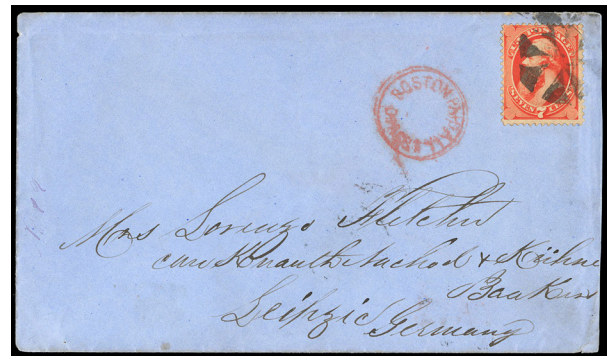 BOSTON PAID ALL
U.S. POSTAGE
SEVEN 7 CENTS
Mrs Lorenzo Fletcher
care Knauth Nachod & Kühne
Baakers
Leipzic Germany